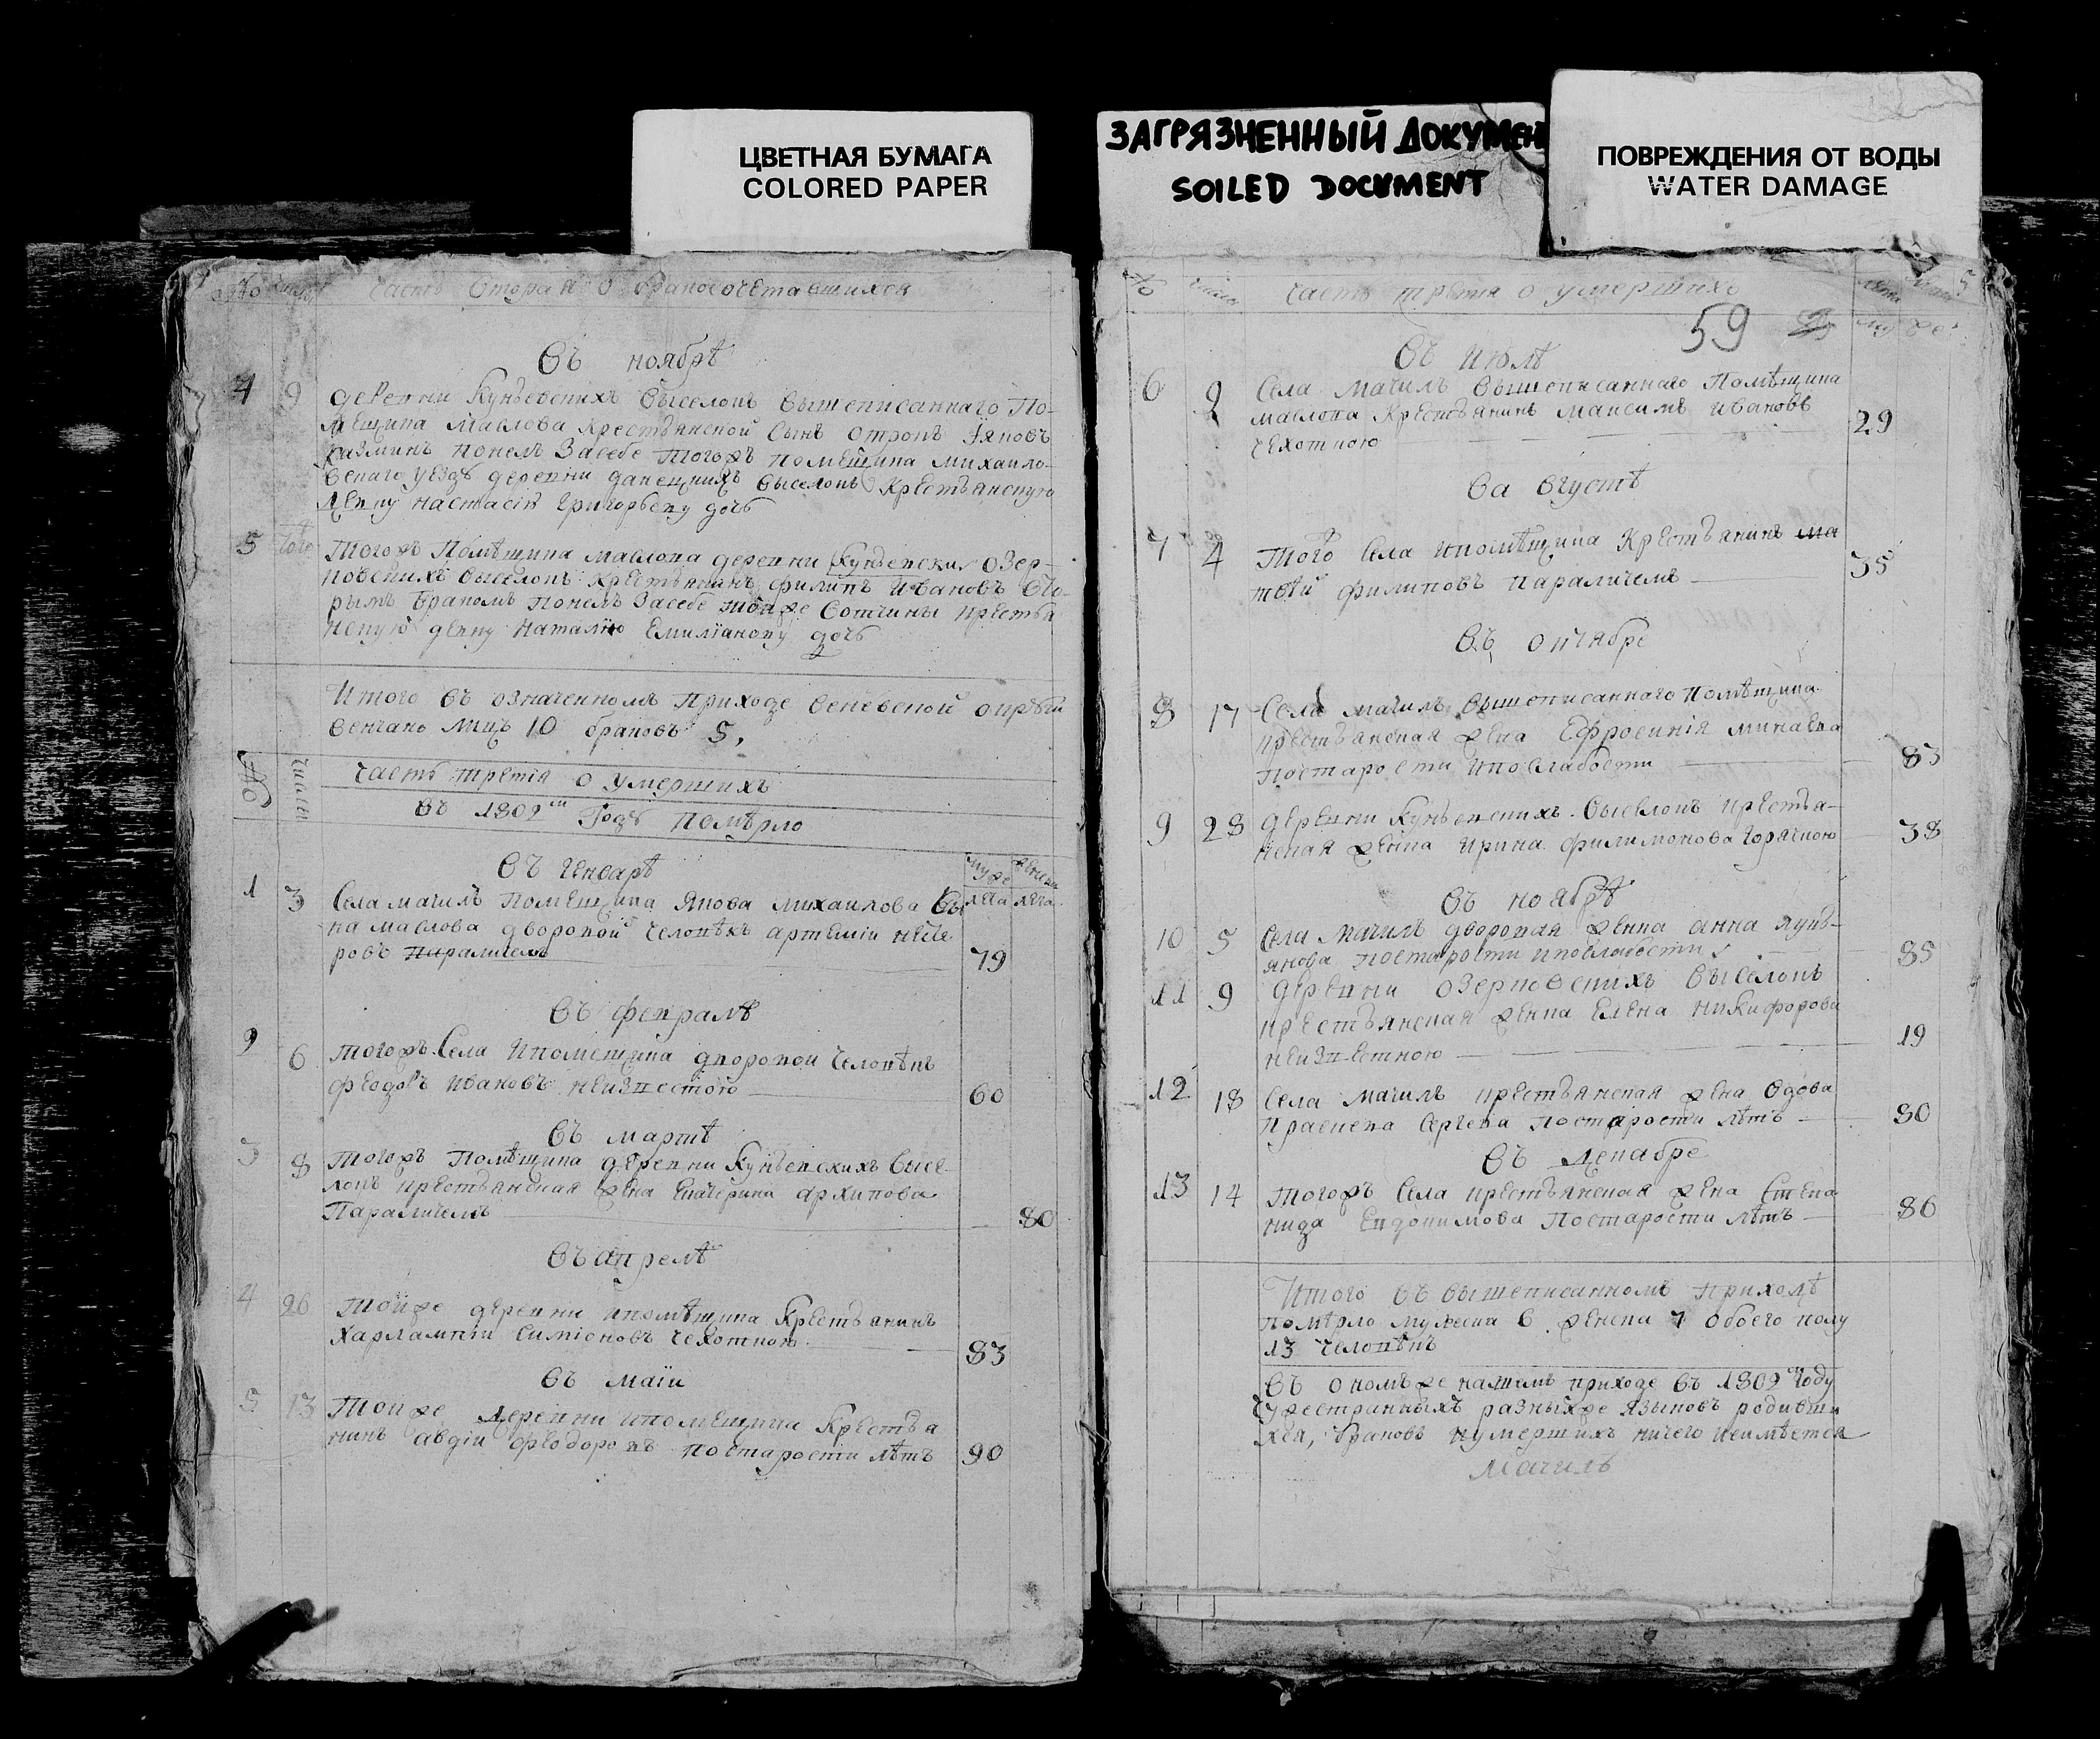 ЦВЕТНАЯ БУМАГА
COLORED PAPER
ЗАГРЯЗНЕННЫЙ ДОКУМЕН
SOILED DOCUMENT
ПОВРЕЖДЕНИЯ ОТ ВОДЫ
WATER DAMAGE
часть вторая о бракосочетавшихся
Въ ноябрѣ
4 9 деревни Кунѣевскихъ выселокъ вышеписаннаго По-
мещика Маслова крестьянской сынъ
казминъ понелъ засебе тогожъ помещика михаило-
вскаго уездъ деревни выселокъ крестьянскую
девку настасію григорьеву дочь
5 того тогожъ Помѣщика маслова деревни Кунѣевских озер-
ковскихъ выселокъ крестьянинъ филипъ Ивановъ вто-
рымъ бракомъ понелъ засебе тойже вотчины крестья
нскую девку наталью Емиліанову дочь
Итого въ означенномъ приходе веневской округи
венчано лицъ 10 браковъ 5,
№ числы часть третія о умершихъ
въ 1802м Годѣ помѣрло
Въ Генварѣ
муже женска
лета лета
1 3 Села мачилъ помещика Якова михаилова Сы
на маслова дворовой человѣкъ артемій
ровъ параличемъ 79
Въ февралѣ
2 6 тогожъ Села ипомещика дворовой человѣкъ
феодоръ Ивановъ неизвестою 60
Въ мартѣ
3 8 тогожъ Помѣщика деревни Кунѣевскихъ высе-
локъ крестьянская жена Екатерина архипова
Параличемъ 80
Въ апрелѣ
4 26 тойже деревни ипомѣщика Крестьянинъ
Харлампій Симіоновъ чехотною 83
Въ маіи
5 13 тойже деревни ипомещика Крестья
нинъ авдіи феодоровъ постарости лѣтъ 90
№ числы часть третія о умершихъ лета лета 5
59
му же
Въ Июлѣ
6 2 Села мачилъ вышеписаннаго Помѣщика
маслова Крестьянинъ максимъ ивановъ
чехотною 29
Ва вгустѣ
7 4 того Села ипомѣщика Крестьянинъ ма
твѣй филиповъ параличемъ 35
Въ октябре
8 17 Села мачилъ вышеписаннаго помѣщика
крестьянская жена Ефросинія минаева
постарости ипослабости 83
9 28 деревни Кунѣевскихъ выселокъ крестья-
нская женка Ирина филимонова горячкою 38
Въ ноябрѣ
10 5 Села мачилъ дворовая женка анна лукь-
янова постарости ипослабости 85
11 9 деревни озерковскихъ выселокъ
крестьянская женка Елена никифорова
неизвестною 19
12 18 Села мачилъ крестьянская жена вдова
Сергева постарости лѣтъ 80
Въ декабре
13 14 тогожъ Села крестьянская жена Степа
нида Евдокимова постарости лѣтъ 86
Итого въ вышеписанномъ приходѣ
помѣрло мужеска 6 женска 7 обоего полу
13 человѣкъ
въ ономъже нашемъ приходе въ 1802м году
чужестранныхъ разныхже языковъ родивши
хся, браковъ иумершихъ ничего неимѣется
мачилъ